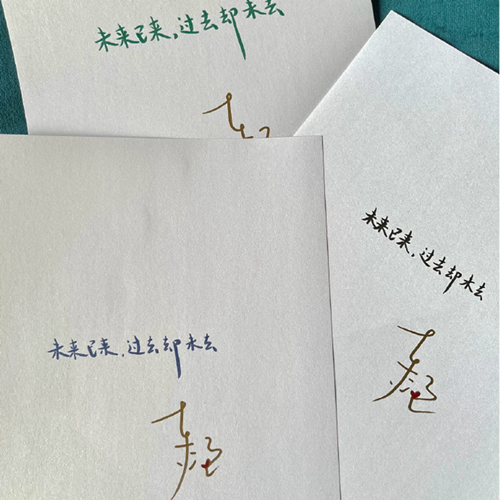 未来已来，过去却未去
未来已来，过去却未去
未来已来，过去却未去